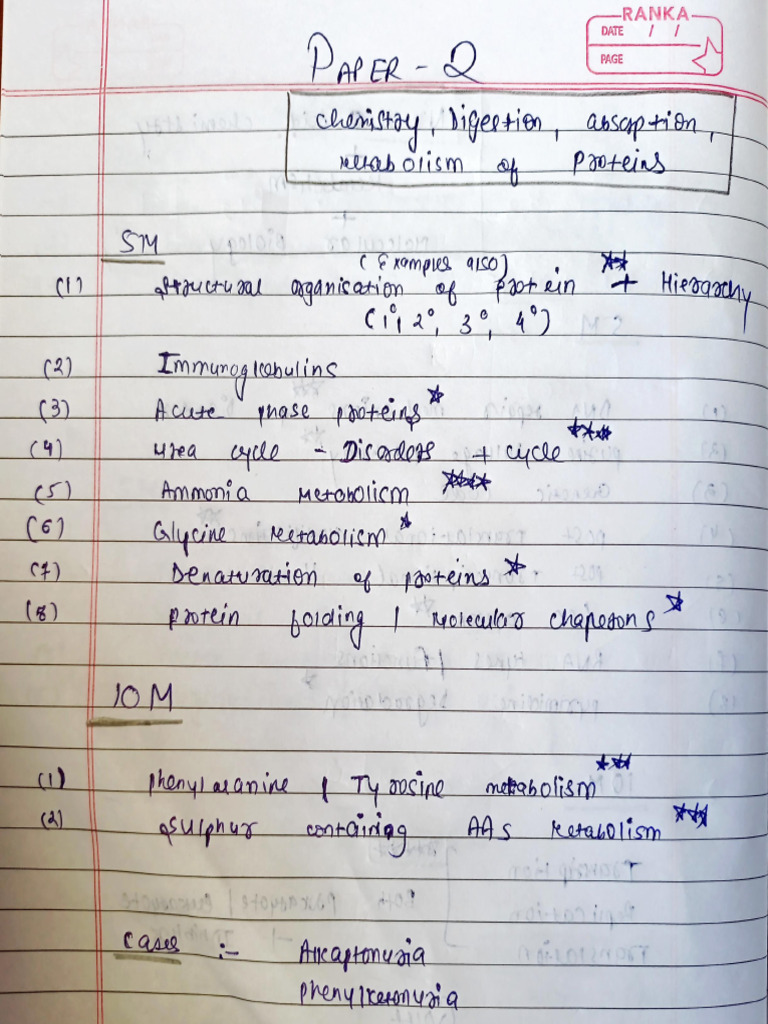 RANKA
DATE / /
PAGE
PAPER - 2
chemistry, Digestion, absorption,
Metabolism of Proteins
5M
(Examples also)
(1) Structural organisation of protein ** + Hierarchy
(1°, 2°, 3°, 4°)
(2) Immunoglobulins
(3) Acute phase proteins *
(4) Urea cycle - Disorders + cycle ***
(5) Ammonia Metabolism ****
(6) Glycine Metabolism *
(7) Denaturation of proteins *
(8) protein folding / Molecular chaperons *
10 M
(1) phenylalanine / Tyrosine metabolism ***
(2) Sulphur containing AAs Metabolism ***
Cases :- Alkaptonuria
phenylketonuria